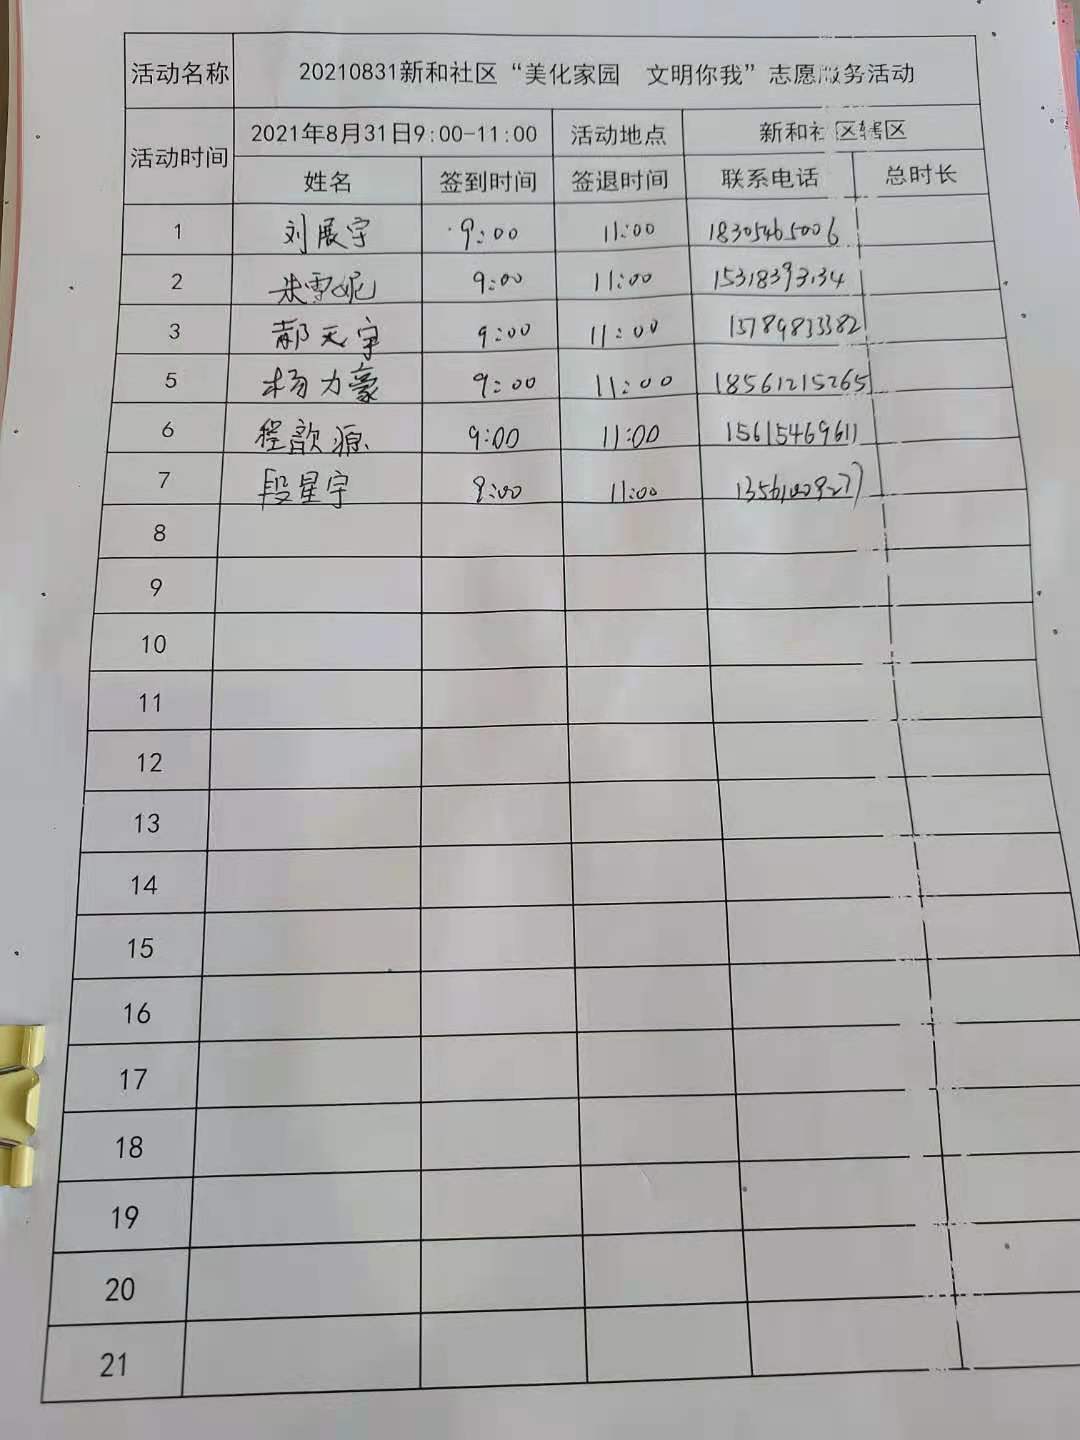 活动名称 20210831新和社区“美化家园 文明你我”志愿服务活动
活动时间 2021年8月31日9:00-11:00 活动地点 新和社区辖区
姓名 签到时间 签退时间 联系电话 总时长
1 刘展宇 9:00 11:00 18305465006
2 朱雪妮 9:00 11:00 15318393134
3 郝天宇 9:00 11:00
5 杨力豪 9:00 11:00 18561215265
6 程歆源 9:00 11:00 15615469611
7 段星宇 9:00 11:00
8
9
10
11
12
13
14
15
16
17
18
19
20
21